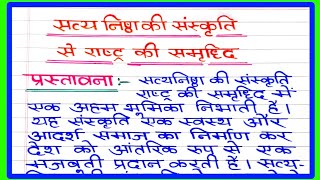 सत्य निष्ठा की संस्कृति
से राष्ट्र की समृद्धि
प्रस्तावना:- सत्यनिष्ठा की संस्कृति
राष्ट्र की समृद्धि में
एक अहम भूमिका निभाती है।
यह संस्कृति एक स्वस्थ और
आदर्श समाज का निर्माण कर
देश को आंतरिक रूप से एक
मजबूती प्रदान करती है। सत्य-